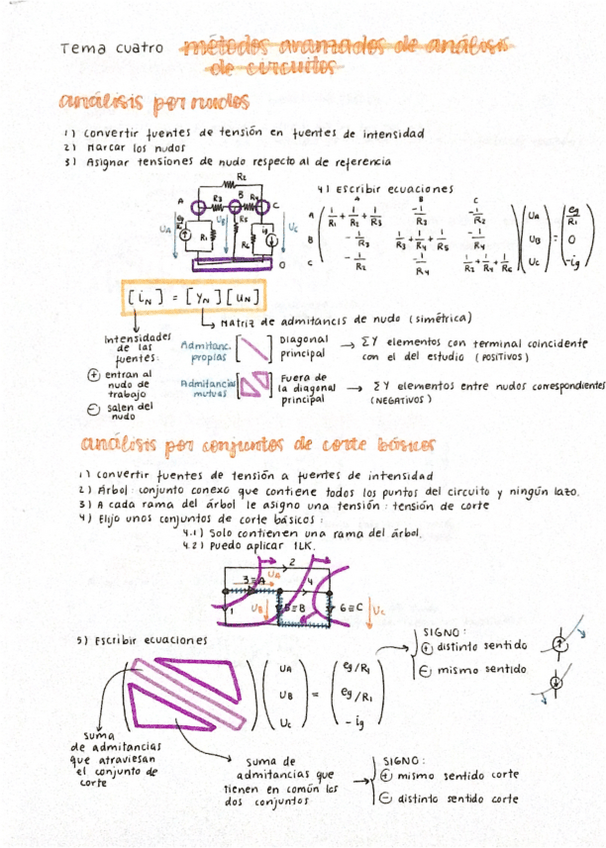 Tema cuatro métodos avanzados de análisis
de circuitos
análisis por nudos
1) Convertir fuentes de tensión en fuentes de intensidad
2) Marcar los nudos
3) Asignar tensiones de nudo respecto al de referencia
4) Escribir ecuaciones
A B C
A 1/R1 + 1/R2 + 1/R3 -1/R3 -1/R2 UA eg/R1
B -1/R3 1/R3 + 1/R4 + 1/R5 -1/R4 UB = 0
C -1/R2 -1/R4 1/R2 + 1/R4 + 1/R6 UC -ig
R2
A R3 B R4 C
UA R1 UB R5 R6 ig UC
0
[iN] = [YN][UN]
Matriz de admitancis de nudo (simétrica)
Intensidades
de las
fuentes:
⊕ entran al
nudo de
trabajo
⊖ salen del
nudo
Admitanc.
propias
Diagonal
principal
→ ΣY elementos con terminal coincidente
con el del estudio (POSITIVOS)
Admitancias
mutuas
Fuera de
la diagonal
principal
→ ΣY elementos entre nudos correspondientes
(NEGATIVOS)
análisis por conjuntos de corte básicos
1) convertir fuentes de tensión a fuentes de intensidad
2) Árbol: conjunto conexo que contiene todos los puntos del circuito y ningún lazo.
3) A cada rama del árbol le asigno una tensión: tensión de corte
4) Elijo unos conjuntos de corte básicos:
4.1) Solo contienen una rama del árbol.
4.2) Puedo aplicar 1LK.
2
UA
3≡A 4
1 UB 5≡B 6≡C UC
5) Escribir ecuaciones
UA eg/R1
UB = eg/R1
UC -ig
SIGNO:
⊕ distinto sentido
⊖ mismo sentido
suma
de admitancias
que atraviesan
el conjunto de
corte
suma de
admitancias que
tienen en común los
dos conjuntos
SIGNO:
⊕ mismo sentido corte
⊖ distinto sentido corte